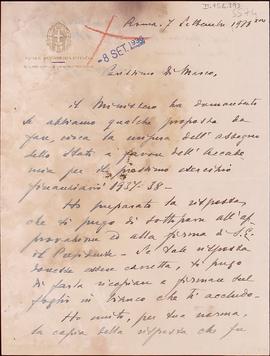 Roma, 7 Settembre 1936 XIV
8 SET. 1936
Carissimo Di Marzo,
Il Ministero ha domandato
se abbiamo qualche proposta da
fare, circa la misura dell'assegno
dello Stato a favore dell'Accade
mia per il prossimo esercizio
finanziario 1937-38—
Ho preparato la risposta,
che ti prego di sottoporre all'ap
provazione ed alla firma di S.E.
il Presidente— Se tale risposta
dovesse essere corretta, ti prego
di farla ricopiare e firmare sul
foglio in bianco che ti accludo—
Ho unito, per tua norma,
la copia della risposta che fu